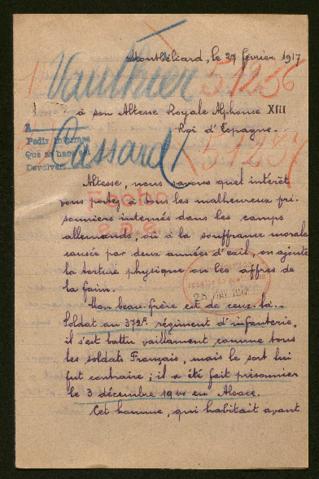 Montbéliard, le 27 février 1917
Vauthier 51256
à son Altesse Royale Alphonse XIII
Roi d'Espagne.
Passard 51257
Altesse, nous savons quel intérêt
vous portez à tous les malheureux pri-
sonniers internés dans les camps
allemands, où à la souffrance morale
causée par deux années d'exil, on ajoute
la torture physique ou les affres de
la faim.
Mon beau-frère est de ceux-là.
Soldat au 372e régiment d'infanterie,
il s'est battu vaillament comme tous
les soldats Français, mais le sort lui
fut contraire; il a été fait prisonnier
le 3 décembre en Alsace.
Cet homme, qui habitait avant